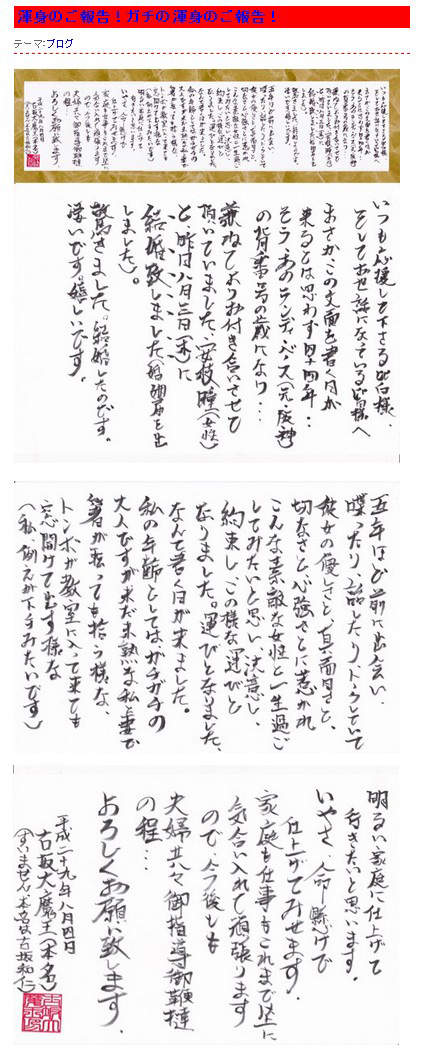 渾身のご報告！ガチの渾身のご報告！
テーマ:ブログ
いつも応援して下さる皆白様、
そしてお世話になっている皆様へ
まさかこの文面を書く日が
来るとは思わず四十四年…
そう、あのランディ・バース(元・阪神)
の背番号の歳になり…
兼ねてよりお付き合いさせて
頂いていました、安枝瞳(女性)
と、昨日八月三日(木)に
結婚致しました(婚姻届を出
しました)。
驚きました。結婚したのです。
凄いです。嬉しいです。
五年ほど前に出会い、
喋ったり、話したり、トークしていて
彼女の優しさと、真面目さと、
切なさと心強さとに惹かれ
こんな素敵な女性と一生過ご
してみたいと思い、決意し、
約束し、この様な運びと
なりました。運びとなりました、
なんて書く日が来ました。
私の年齢としては、ガチガチの
大人ですが、未だ未熟な私と妻で
箸が転っても拾う様な、
トンボが教室に入って来ても
窓開けて出す様な
(私、例えが下手みたいです)
明るい家庭に仕上げて
行きたいと思います。
いやさ、命懸けで
仕上げてみせます。
家庭も仕事もこれまで以上に
気合い入れて頑張ります
ので、今後しも
夫婦共々御指導御鞭撻
の程…
よろしくお願い致します。
平成二十九年八月四日
古坂大魔王(本名)
(すいません、本名は古坂和仁)